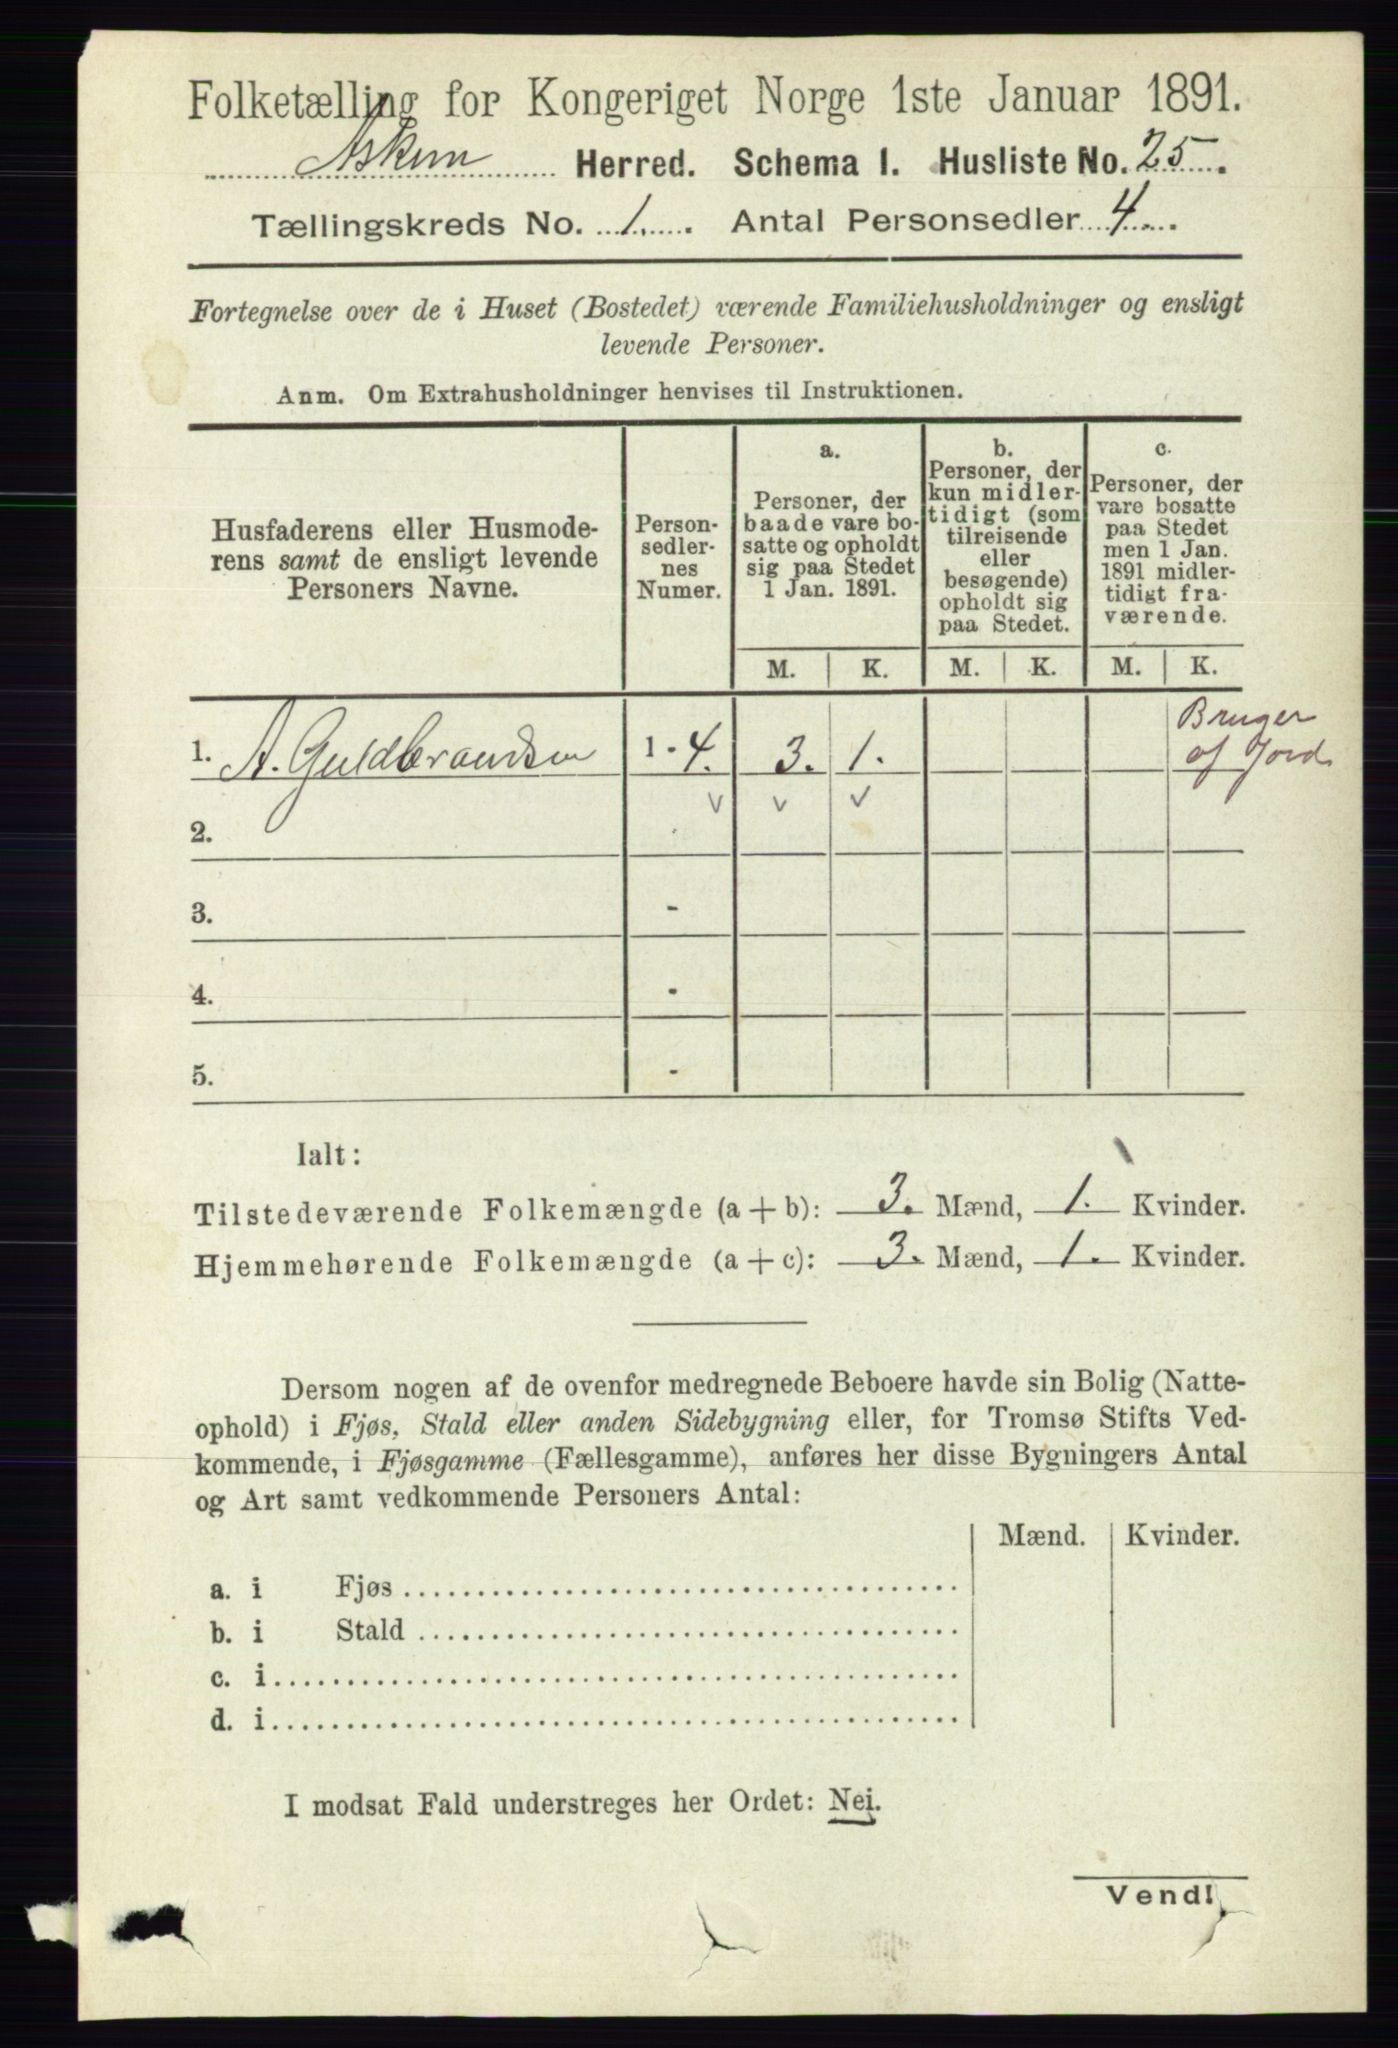 Folketælling for Kongeriget Norge 1ste Januar 1891.
Askim Herred. Schema I. Husliste No. 25.
Tællingskreds No. 1. Antal Personsedler 4.
Fortegnelse over de i Huset (Bostedet) værende Familiehusholdninger og ensligt
levende Personer.
Anm. Om Extrahusholdninger henvises til Instruktionen.
Husfaderens eller Husmode-
rens samt de ensligt levende
Personers Navne.
Person-
sedler-
nes
Numer.
a.
Personer, der
baade vare bo-
satte og opholdt
sig paa Stedet
1 Jan. 1891.
b.
Personer, der
kun midler-
tidigt (som
tilreisende
eller
besøgende)
opholdt sig
paa Stedet.
c.
Personer, der
vare bosatte
paa Stedet
men 1 Jan.
1891 midler-
tidigt fra-
værende.
M. K. M. K. M. K.
1. A. Guldbrandsen 1 - 4. 3. 1. Bruger
af Jord
2. -
3. -
4. -
5. -
Ialt:
Tilstedeværende Folkemængde (a + b): 3. Mænd, 1. Kvinder.
Hjemmehørende Folkemængde (a + c): 3. Mænd, 1. Kvinder.
Dersom nogen af de ovenfor medregnede Beboere havde sin Bolig (Natte-
ophold) i Fjøs, Stald eller anden Sidebygning eller, for Tromsø Stifts Ved-
kommende, i Fjøsgamme (Fællesgamme), anføres her disse Bygningers Antal
og Art samt vedkommende Personers Antal:
Mænd. Kvinder.
a. i Fjøs
b. i Stald
c. i
d. i
I modsat Fald understreges her Ordet: Nei.
Vend!